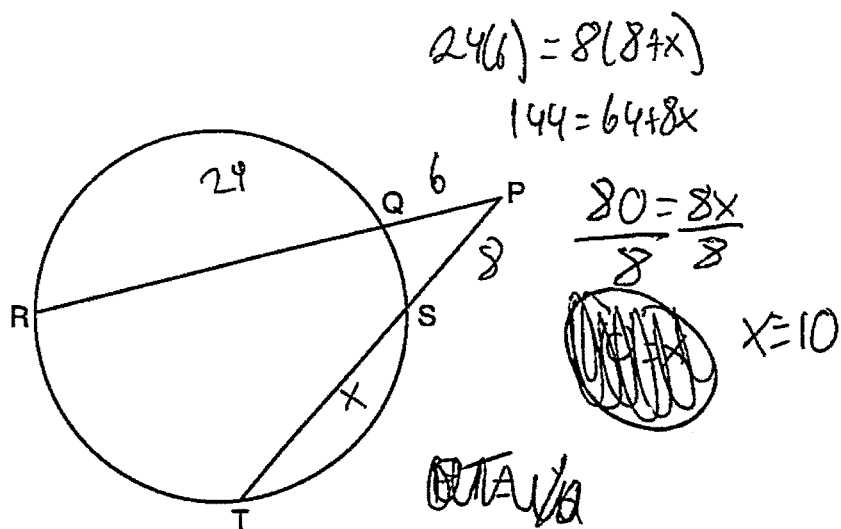 24(6) = 8(8+x)
144 = 64+8x
80 = 8x
8 8
x=10
24
6
Q
P
8
R
S
x
T